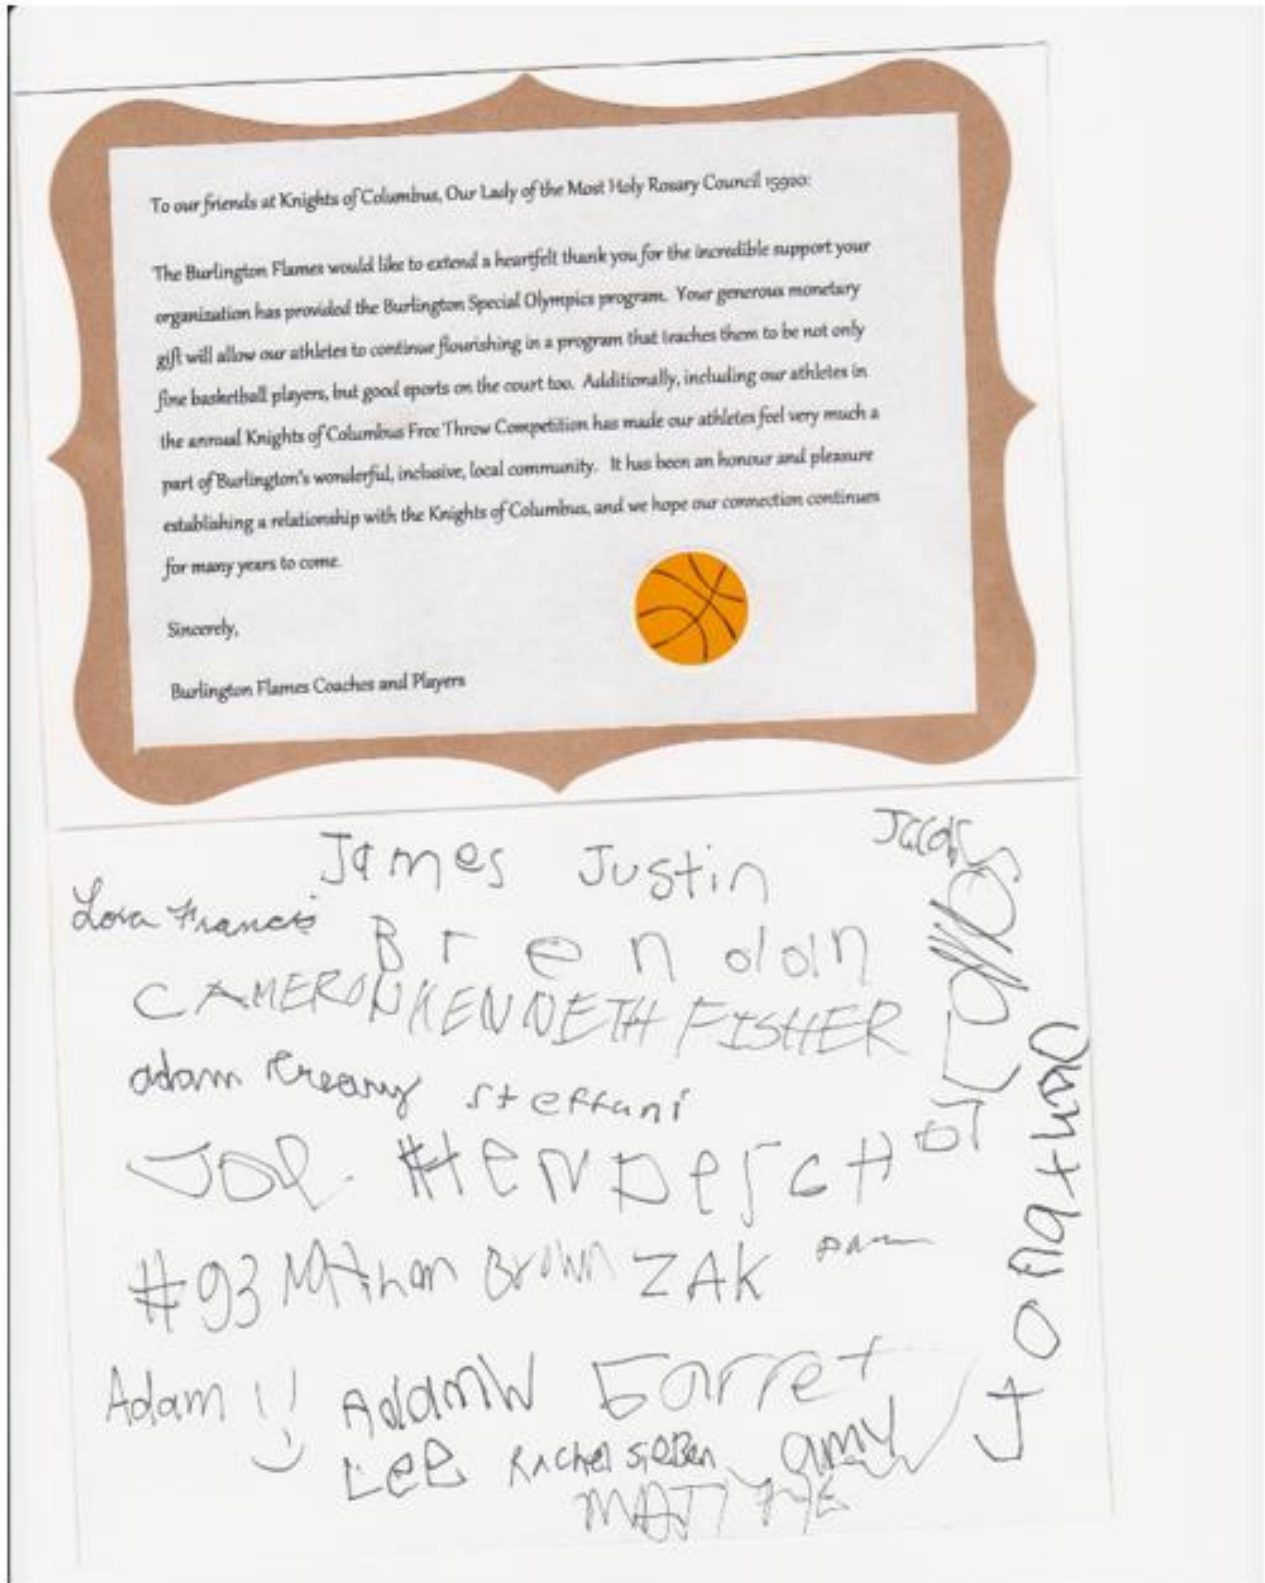 To our friends at Knights of Columbus, Our Lady of the Most Holy Rosary Council 15920:
The Burlington Flames would like to extend a heartfelt thank you for the incredible support your
organization has provided the Burlington Special Olympics program. Your generous monetary
gift will allow our athletes to continue flourishing in a program that teaches them to be not only
fine basketball players, but good sports on the court too. Additionally, including our athletes in
the annual Knights of Columbus Free Throw Competition has made our athletes feel very much a
part of Burlington's wonderful, inclusive, local community. It has been an honour and pleasure
establishing a relationship with the Knights of Columbus, and we hope our connection continues
for many years to come.
Sincerely,
Burlington Flames Coaches and Players
James Justin
Francis
Brendan
CAMERON KENNETH FISHER
adam Kreary steffani
Joe
#93 Nathan Brown ZAK
Adam AdamW Garret
Lee Rachel amy
Jonathan